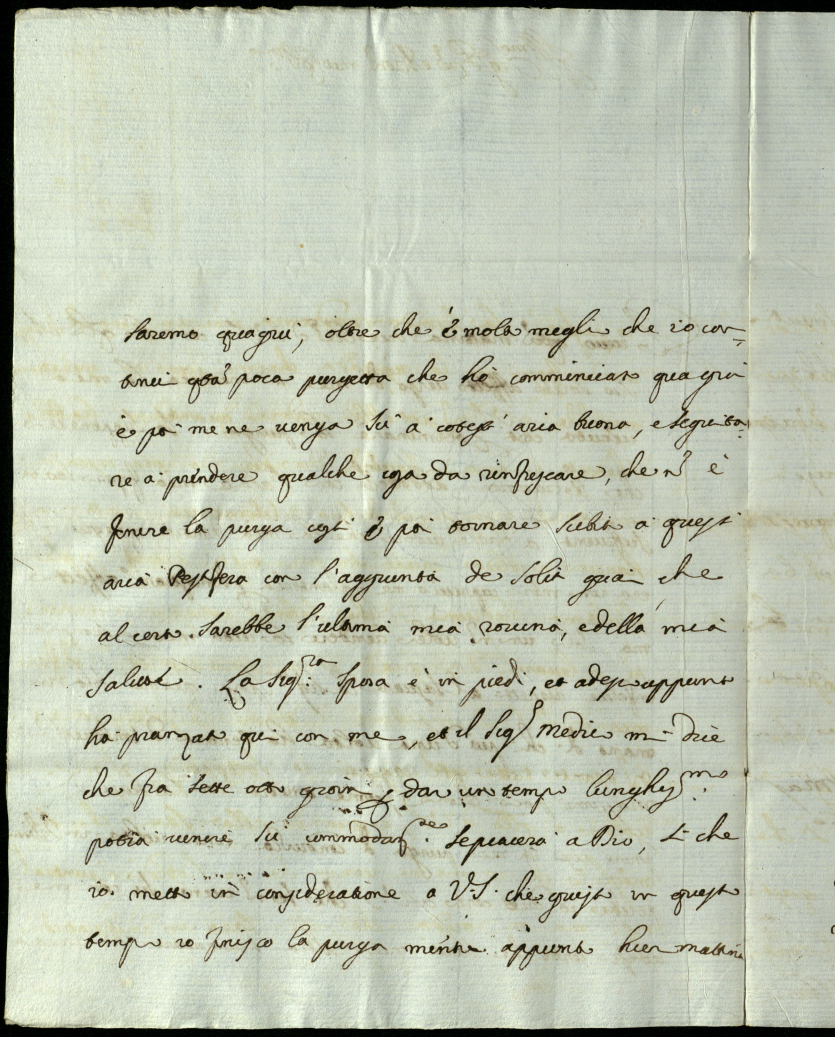 saremo quagiù, oltre che è molto meglio che io con-
tinui q.ta poca purgetta che hò comminciato quagiù
e poi me ne venga sù à cotest'aria buona, e seguita-
re à prendere qualche cosa da rinfrescare, che nõ è
finire la purga costì è poi tornare subito à quest'
aria Pestifera con l'aggiunta de soliti guai che
al certo sarebbe l'ultima mia rovina, e della mia
salute. La Sig.ra Sposa è in piedi, et adesso appunto
hà pranzato qui con me, et il Sig.r Medico mi dice
che frà sette otto giorni dar un tempo lunghiss.mo
potrà venire sù commodam.te se piacerà a Dio, Si che
io metto in consideratione a V.S. che questo in questo
tempo io finisco la purga mentre appunto hier mattina